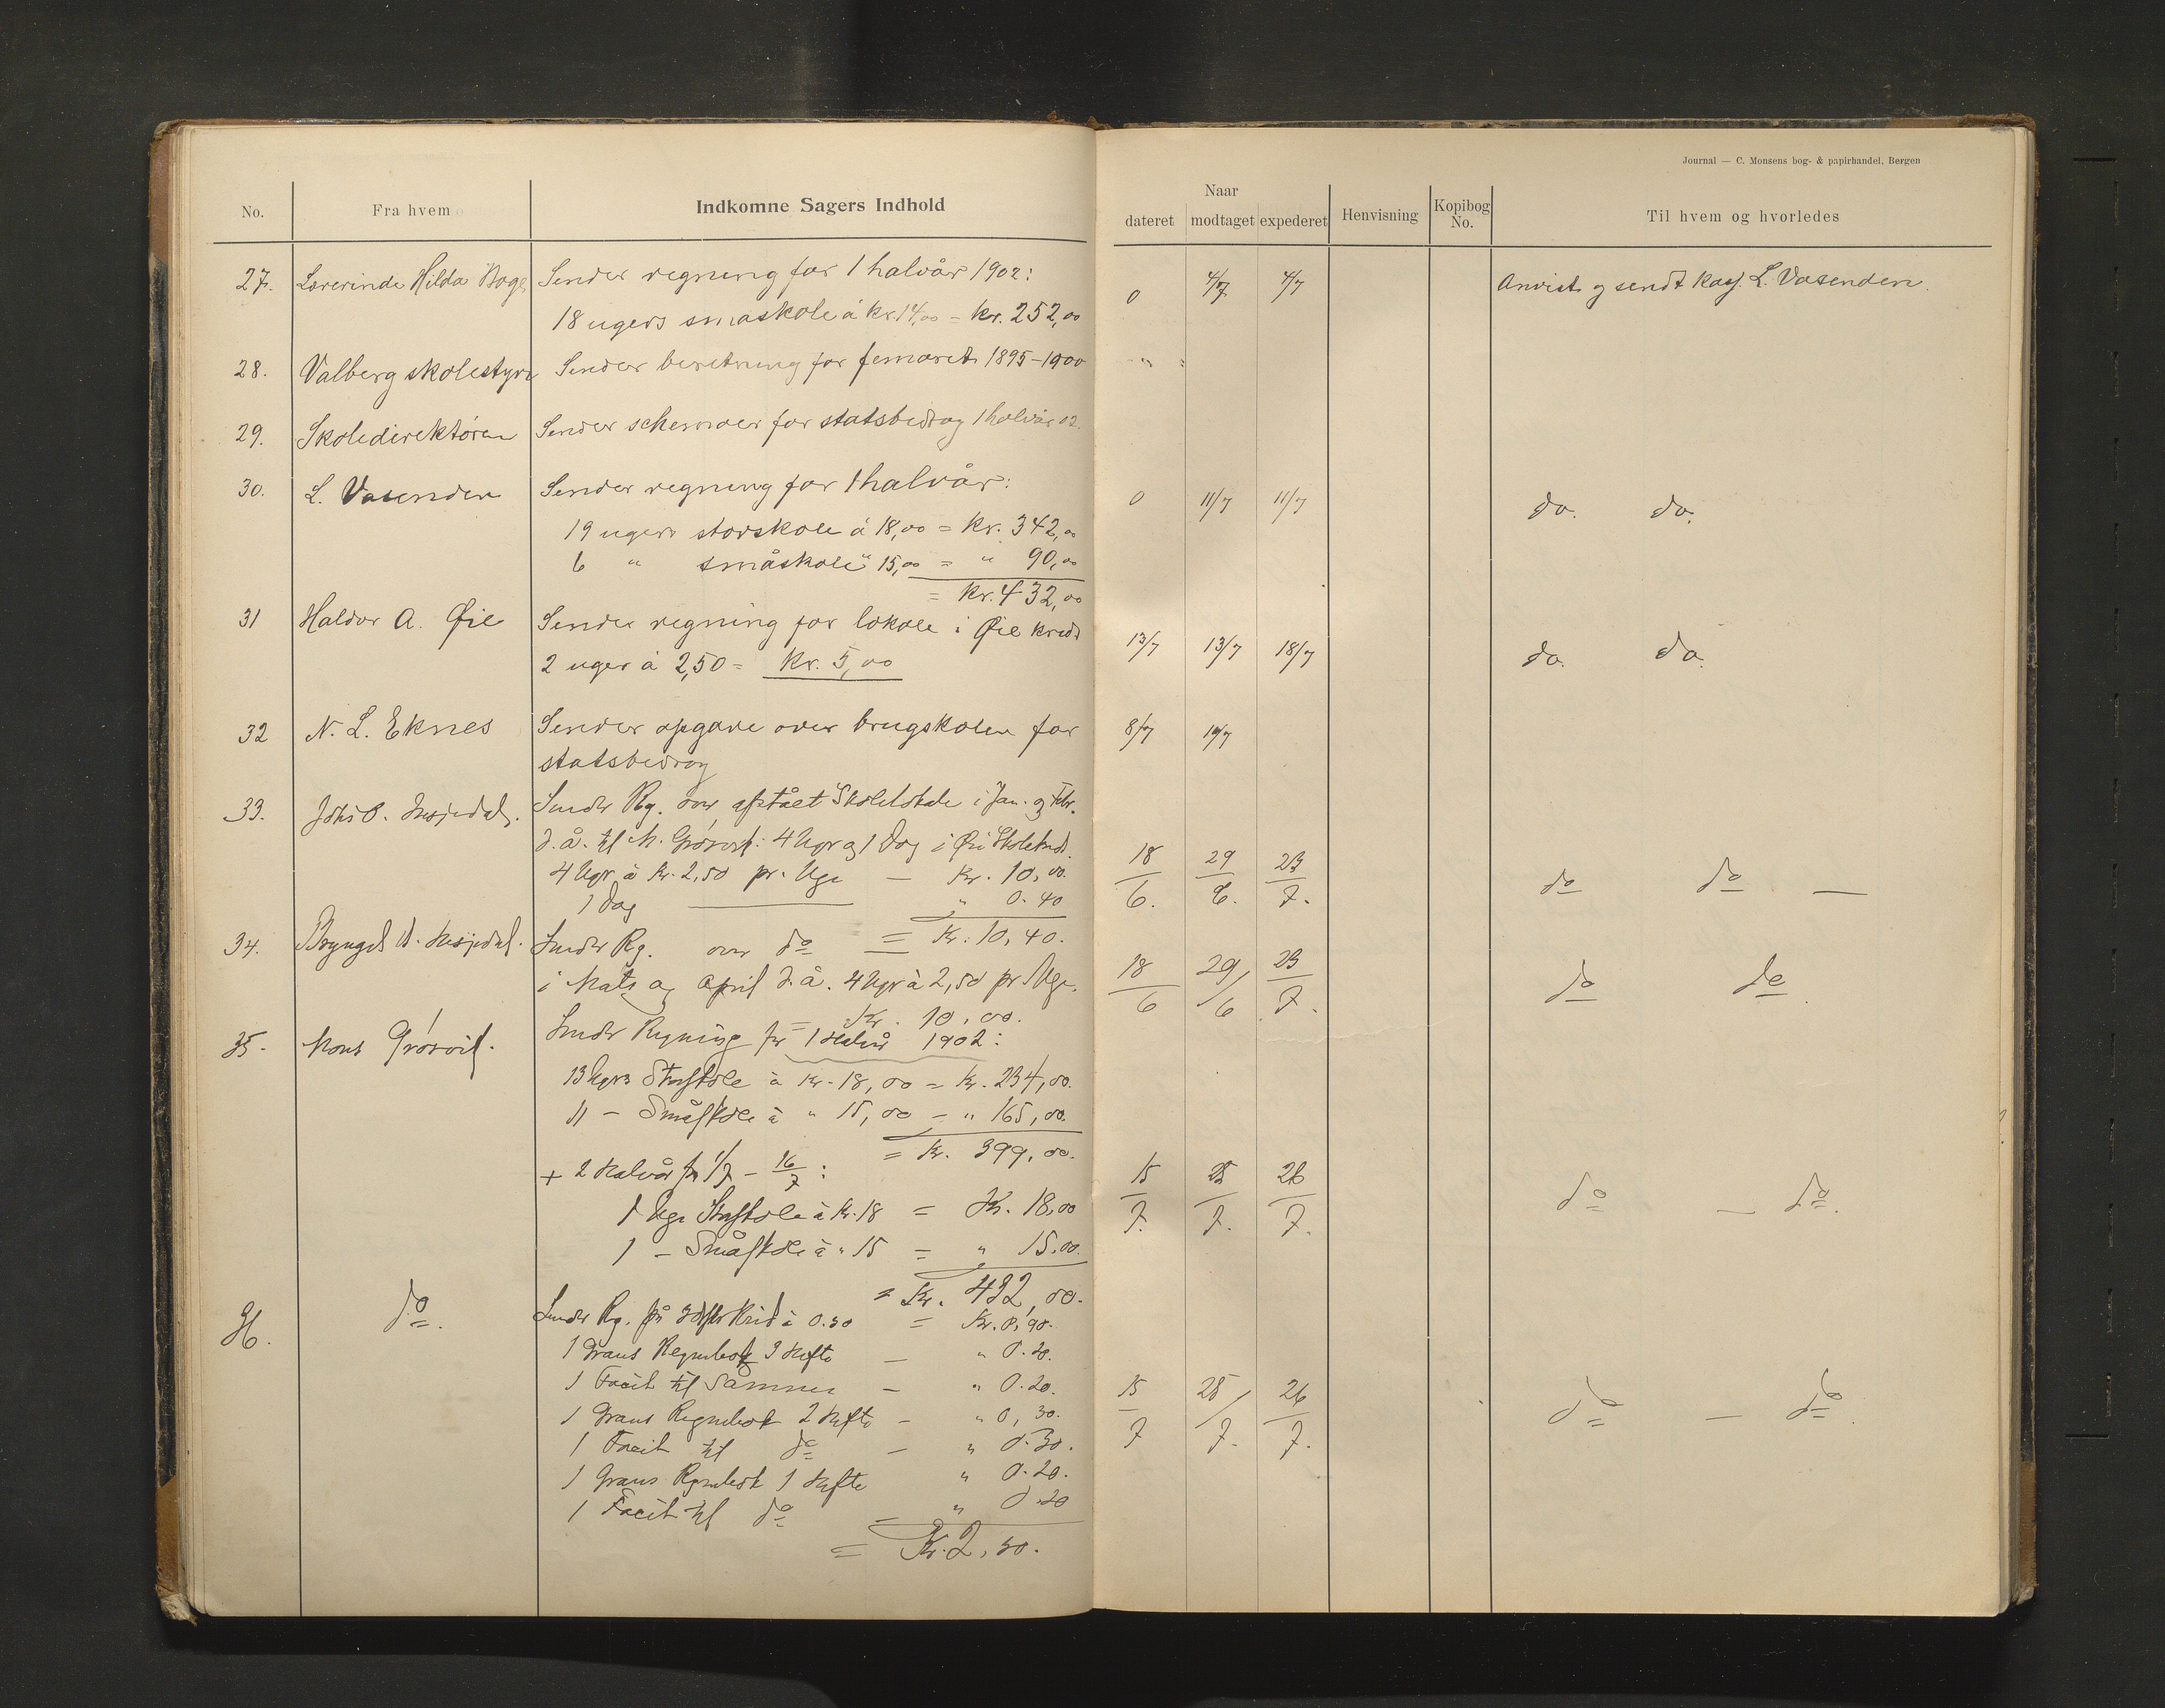 Journal — C. Monsens bog- & papirhandel, Bergen
No. Fra hvem Indkomne Sagers Indhold
Naar
dateret modtaget expederet Henvisning Kopibog No. Til hvem og hvorledes
27. Lærerinde Hilda Boge Sender regning for 1 halvår 1902: 0 4/7 4/7 Anvist og sendt Kas. L. Vasenden.
18 ugers småskole á kr. 14,00 = kr. 252,00
28. Valberg skolestyre Sender beretning for femaret 1895–1900 " :
29. Skoledirektøren Sender schemaer for statsbidrag 1 halvår 02.
30. L. Vasenden Sender regning for 1 halvår: 0 11/7 11/7 do. do.
19 ugers storskole á 18,00 = kr. 342,00
6 " småskole " 15,00 = " 90,00
= kr. 432,00
31 Haldor A. Øie Sender regning for lokale i Øie kreds 13/7 13/7 18/7 do. do.
2 uger á 2,50 = kr. 5,00
32 N. L. Eknes Sender opgave over brugskolen for 8/7 19/7
statsbidrag
33. Sender Rg. over afstået Skolelokale i Jan. og Febr.
d. å. til M. Grøsvik: 4 Uger og 1 Dag i Øie Skolekreds. 18/6. 29/6. 23/7. do do —
4 Uger à Kr. 2,50 pr. Uge — Kr. 10,00.
1 Dag — " 0.40
= Kr. 10,40.
34. Sender Rg. over do 18/6 29/6 23/7. do do.
i Mats og April d. å. 4 Uger à 2,50 pr. Uge.
= Kr. 10,00.
35. Mons Grøsvik. Sender Regning for 1 Halvår 1902:
13 Ugers Storskole à Kr. 18,00 = Kr. 234,00.
11 – Småskole à " 15,00 – " 165,00.
= Kr. 399,00.
+ 2 Halvår fra 1/7 – 16/7: 15/7. 25/7. 26/7. do — do.
1 Uge Storskole à Kr. 18 = Kr. 18,00
1 – Småskole à " 15 = " 15.00.
= Kr. 432,00.
36. do. Sender Rg. på 3 Æsker Krid à 0.30 = Kr. 0,90.
1 Regnebok 3 Hefte — " 0.20.
1 Facit til Samme — " 0.20. 15/7 25/7. 26/7. do — do.
1 Regnebok 2 Hefte – " 0,30.
1 Facit til do — " 0.30.
1 Regnebok 1 Hefte " 0.20.
1 Facit til do – " 0.20
= Kr. 2,30.